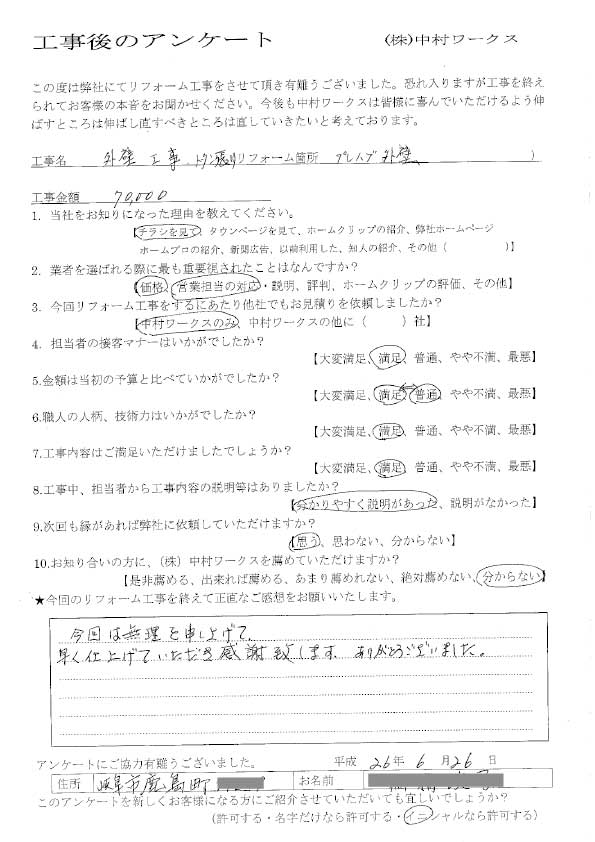 工事後のアンケート (株)中村ワークス
この度は弊社にてリフォーム工事をさせて頂き有難うございました。恐れ入りますが工事を終え
られてお客様の本音をお聞かせください。今後も中村ワークスは皆様に喜んでいただけるよう伸
ばすところは伸ばし直すべきところは直していきたいと考えております。
工事名 外壁工事.トタン張りリフォーム箇所 プレハブ外壁 )
工事金額 70,000
1. 当社をお知りになった理由を教えてください。
【チラシを見て、タウンページを見て、ホームクリップの紹介、弊社ホームページ
ホームプロの紹介、新聞広告、以前利用した、知人の紹介、その他( )】
2. 業者を選ばれる際に最も重要視されたことはなんですか?
【価格、営業担当の対応・説明、評判、ホームクリップの評価、その他】
3. 今回リフォーム工事をするにあたり他社でもお見積りを依頼しましたか?
【中村ワークスのみ、中村ワークスの他に( )社】
4. 担当者の接客マナーはいかがでしたか?
【大変満足、満足、普通、やや不満、最悪】
5.金額は当初の予算と比べていかがでしたか?
【大変満足、満足、普通、やや不満、最悪】
6.職人の人柄、技術力はいかがでしたか?
【大変満足、満足、普通、やや不満、最悪】
7.工事内容はご満足いただけましたでしょうか?
【大変満足、満足、普通、やや不満、最悪】
8.工事中、担当者から工事内容の説明等はありましたか?
【分かりやすく説明があった、説明がなかった】
9.次回も縁があれば弊社に依頼していただけますか?
【思う、思わない、分からない】
10.お知り合いの方に、(株)中村ワークスを薦めていただけますか?
【是非薦める、出来れば薦める、あまり薦めれない、絶対薦めない、分からない】
★今回のリフォーム工事を終えて正直なご感想をお願いいたします。
今回は無理を申上げて、
早く仕上げていただき感謝致します。ありがとうございました。
アンケートにご協力有難うございました。 平成 26年 6月26日
住所 岐阜市鹿島町 お名前
このアンケートを新しくお客様になる方にご紹介させていただいても宜しいでしょうか?
(許可する・名字だけなら許可する・イニシャルなら許可する)